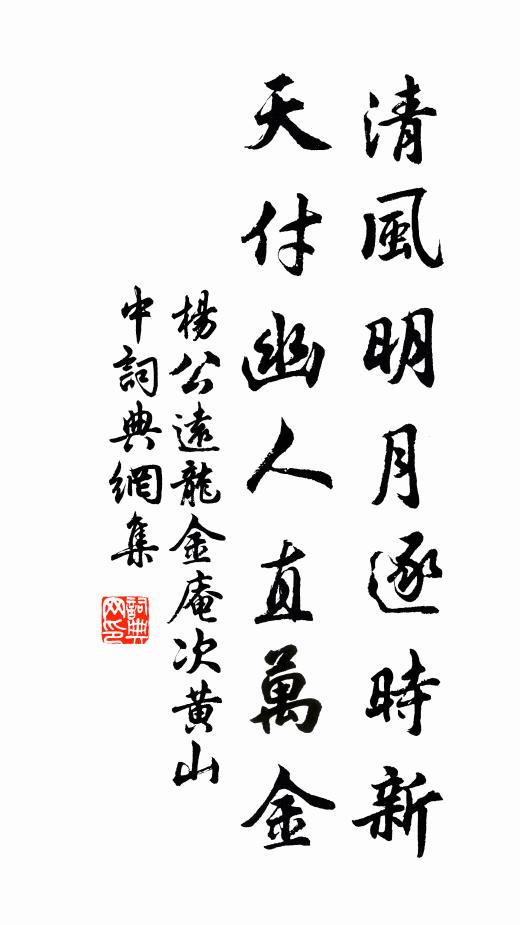 清風明月逐時新
天付幽人直萬金
楊公遠龍金庵次黃山
中詞典網集
詞典
网印